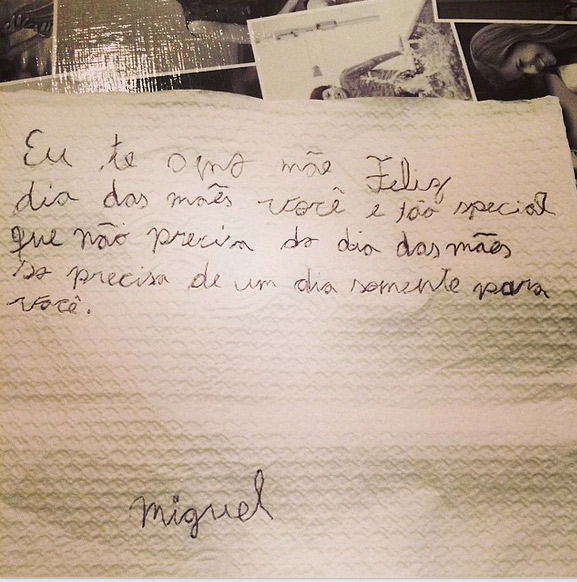 Eu te amo mãe Feliz
dia das mães você e tão special
que não precisa do dia das mães
so precisa de um dia somente para
você.
Miguel